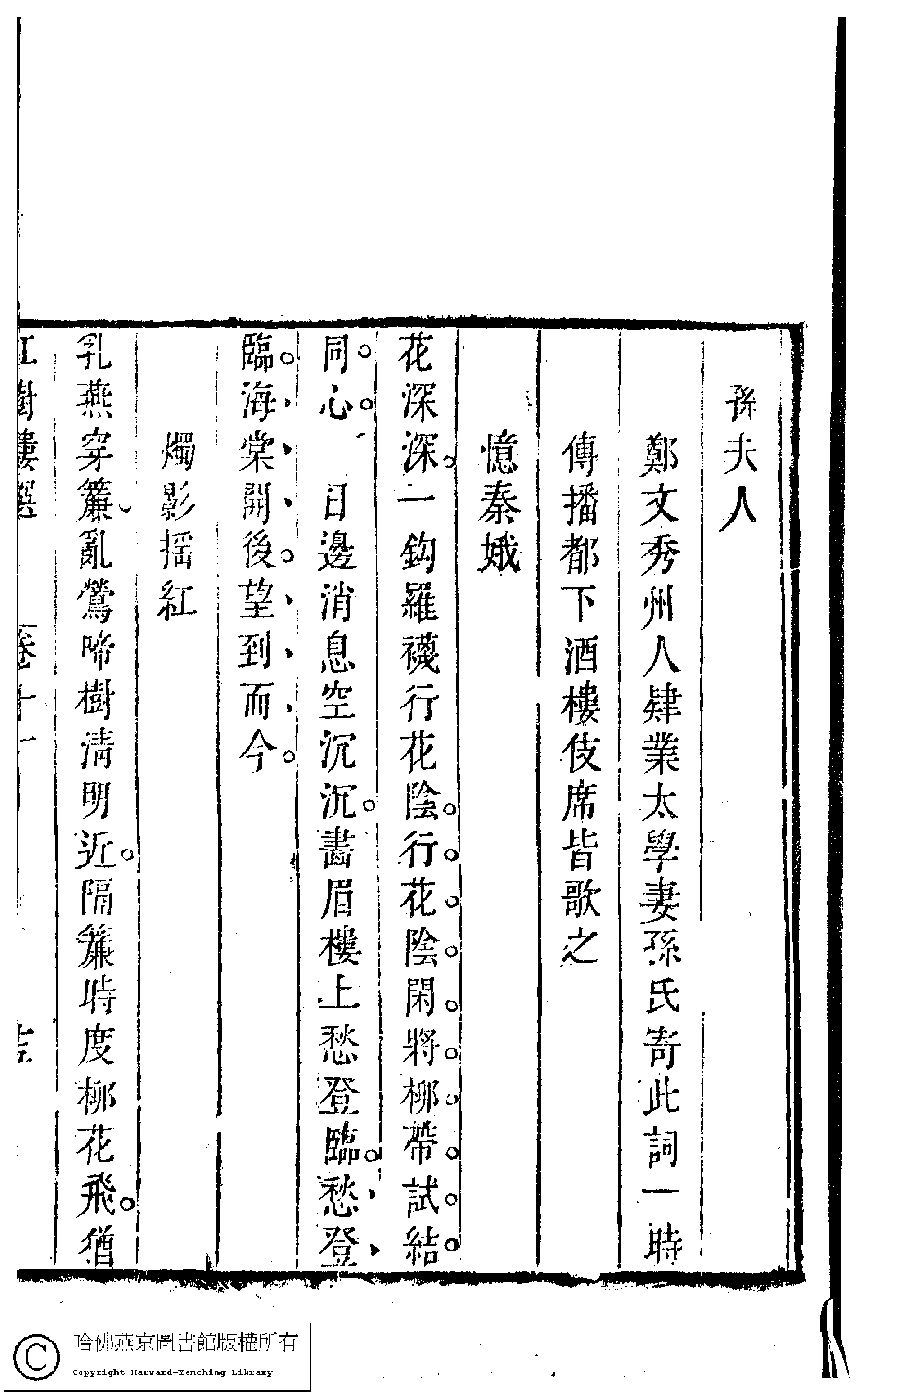 孫夫人
鄭文秀州人肄業太學妻孫氏寄此詞一時
傳播都下酒樓伎席皆歌之
憶秦娥
花深深。一鈎羅襪行花陰。行花陰。閑將柳帶試結
同心。日邊消息空沉沉。畵眉樓上愁登臨。愁登
臨。海棠開後。望到而今。
燭影揺紅
乳燕穿簾亂鶯啼樹清明近。隔簾時度柳花飛。猶
紅樹樓選 卷十一 十三
哈佛燕京圖書館版權所有
Copyright Harvard-Yenching Library